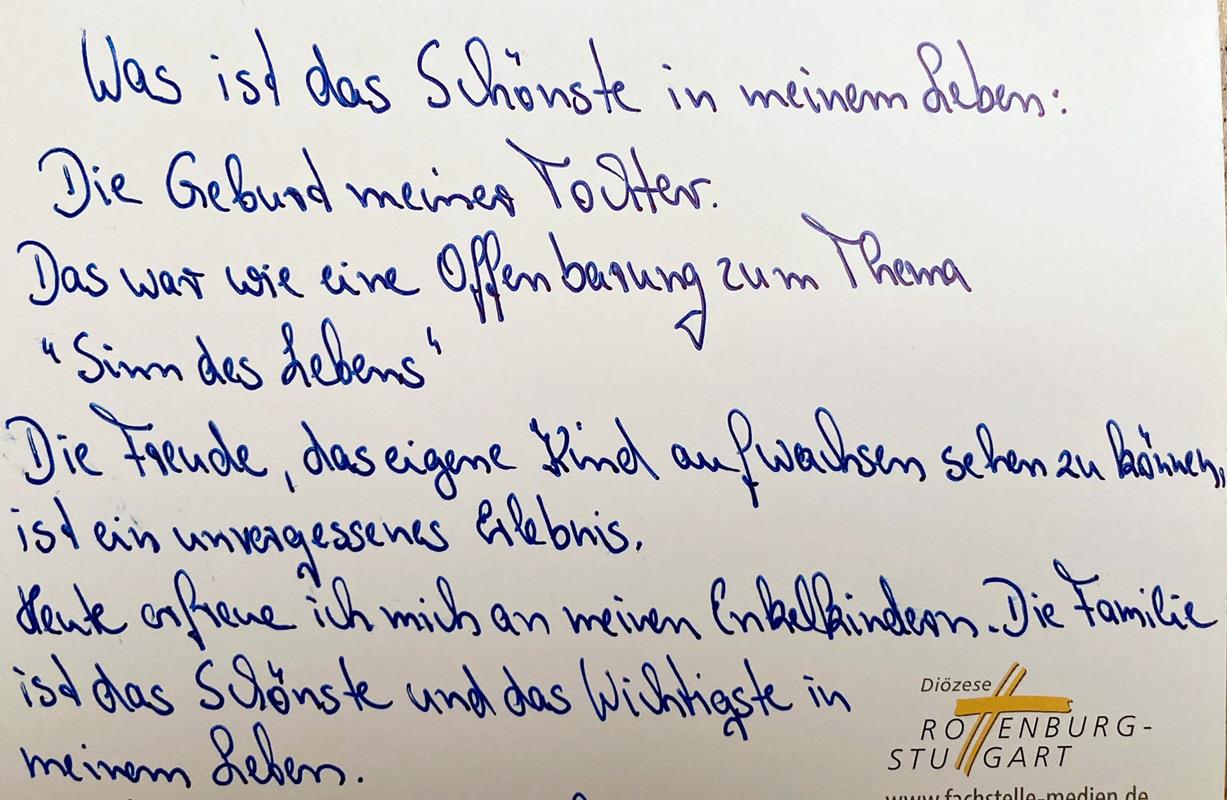 Was ist das Schönste in meinem Leben:
Die Geburd meiner Tochter.
Das war wie eine Offenbarung zum Thema
"Sinn des Lebens"
Die Freude, das eigene Kind aufwachsen sehen zu können,
ist ein unvergessenes Erlebnis.
Heute erfreue ich mich an meinen Enkelkindern. Die Familie
ist das Schönste und das Wichtigste in
meinem Leben.
Diözese
ROTTENBURG-
STUTTGART
www.fachstelle-medien.de